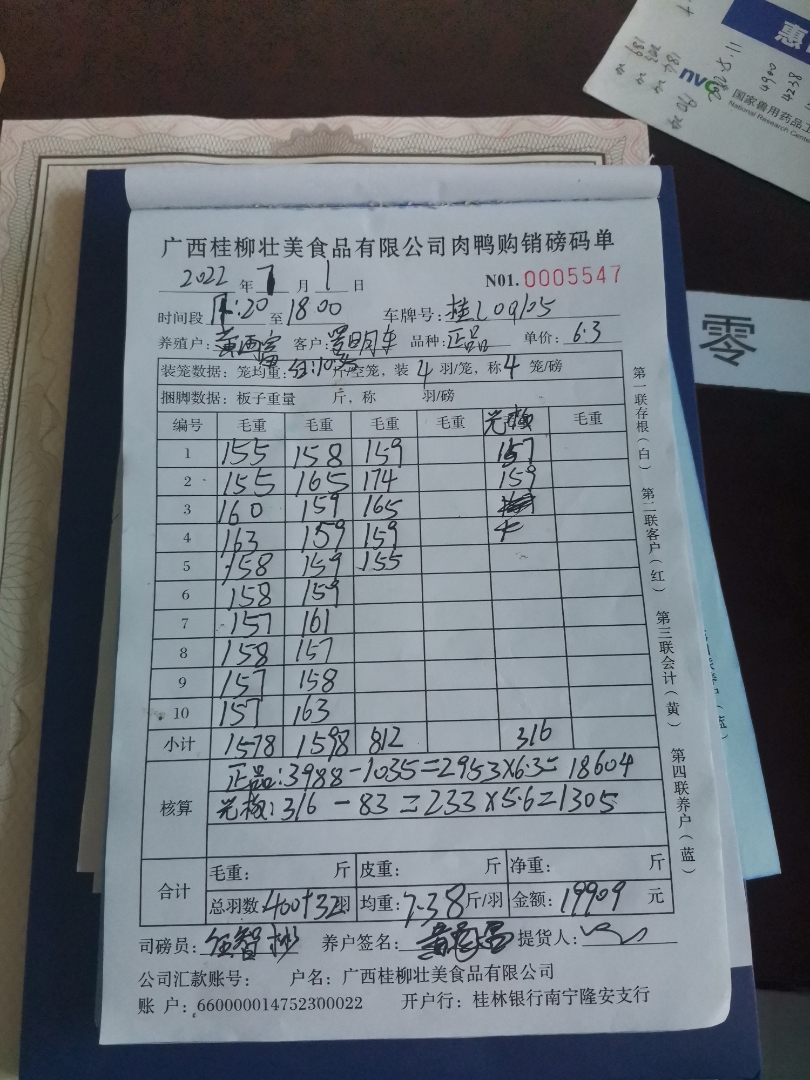 惠
nvc
国家兽用药品工
National Research Cente
2022.5.11
4900
4238
零
广西桂柳壮美食品有限公司肉鸭购销磅码单
2022 年 7 月 1 日 N01. 0005547
时间段 :20 至 18 00 车牌号: 桂L09105
养殖户: 黄西富 客户: 品种: 正品 单价: 6.3
装笼数据: 笼均重: 斤/空笼, 装 4 羽/笼, 称 4 笼/磅
捆脚数据: 板子重量 斤, 称 羽/磅
编号 毛重 毛重 毛重 毛重 毛重
1 155 158 159 157
2 155 165 174 159
3 160 159 165
4 163 159 159
5 158 159 155
6 158 159
7 157 161
8 158 157
9 157 158
10 157 163
小计 1578 1598 812 316
核算
正品:3988-1035=2953×6.3=18604
:316-83=233×5.6=1305
合计
毛重: 斤 皮重: 斤 净重: 斤
总羽数: 400+32 羽 均重: 7.38 斤/羽 金额: 19909 元
司磅员: 养户签名: 提货人:
公司汇款账号: 户名: 广西桂柳壮美食品有限公司
账 户: 660000014752300022 开户行: 桂林银行南宁隆安支行
第一联存根(白) 第二联客户(红) 第三联会计(黄) 第四联养户(蓝)